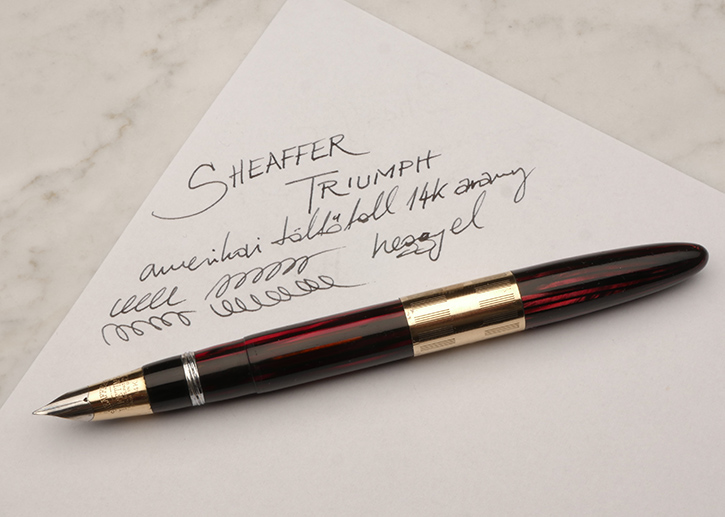 SHEAFFER
TRIUMPH
amerikai töltőtoll 14k arany
heggyel